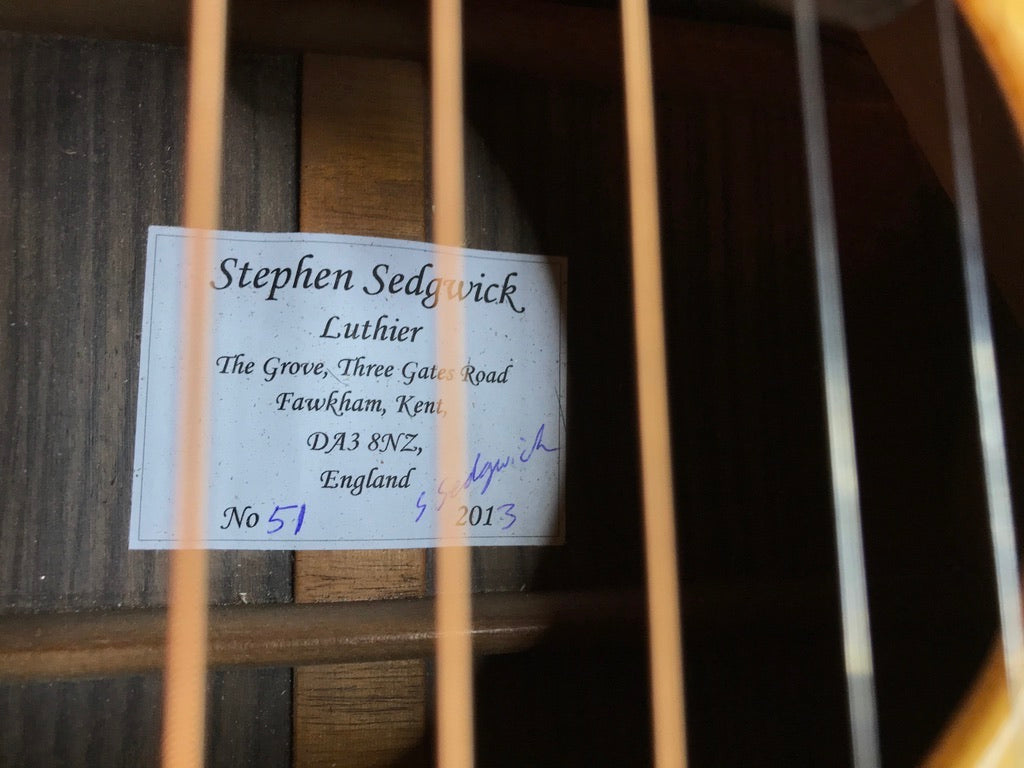 Stephen Sedgwick
Luthier
The Grove, Three Gates Road
Fawkham, Kent,
DA3 8NZ,
England
S Sedgwick
No 51 2013